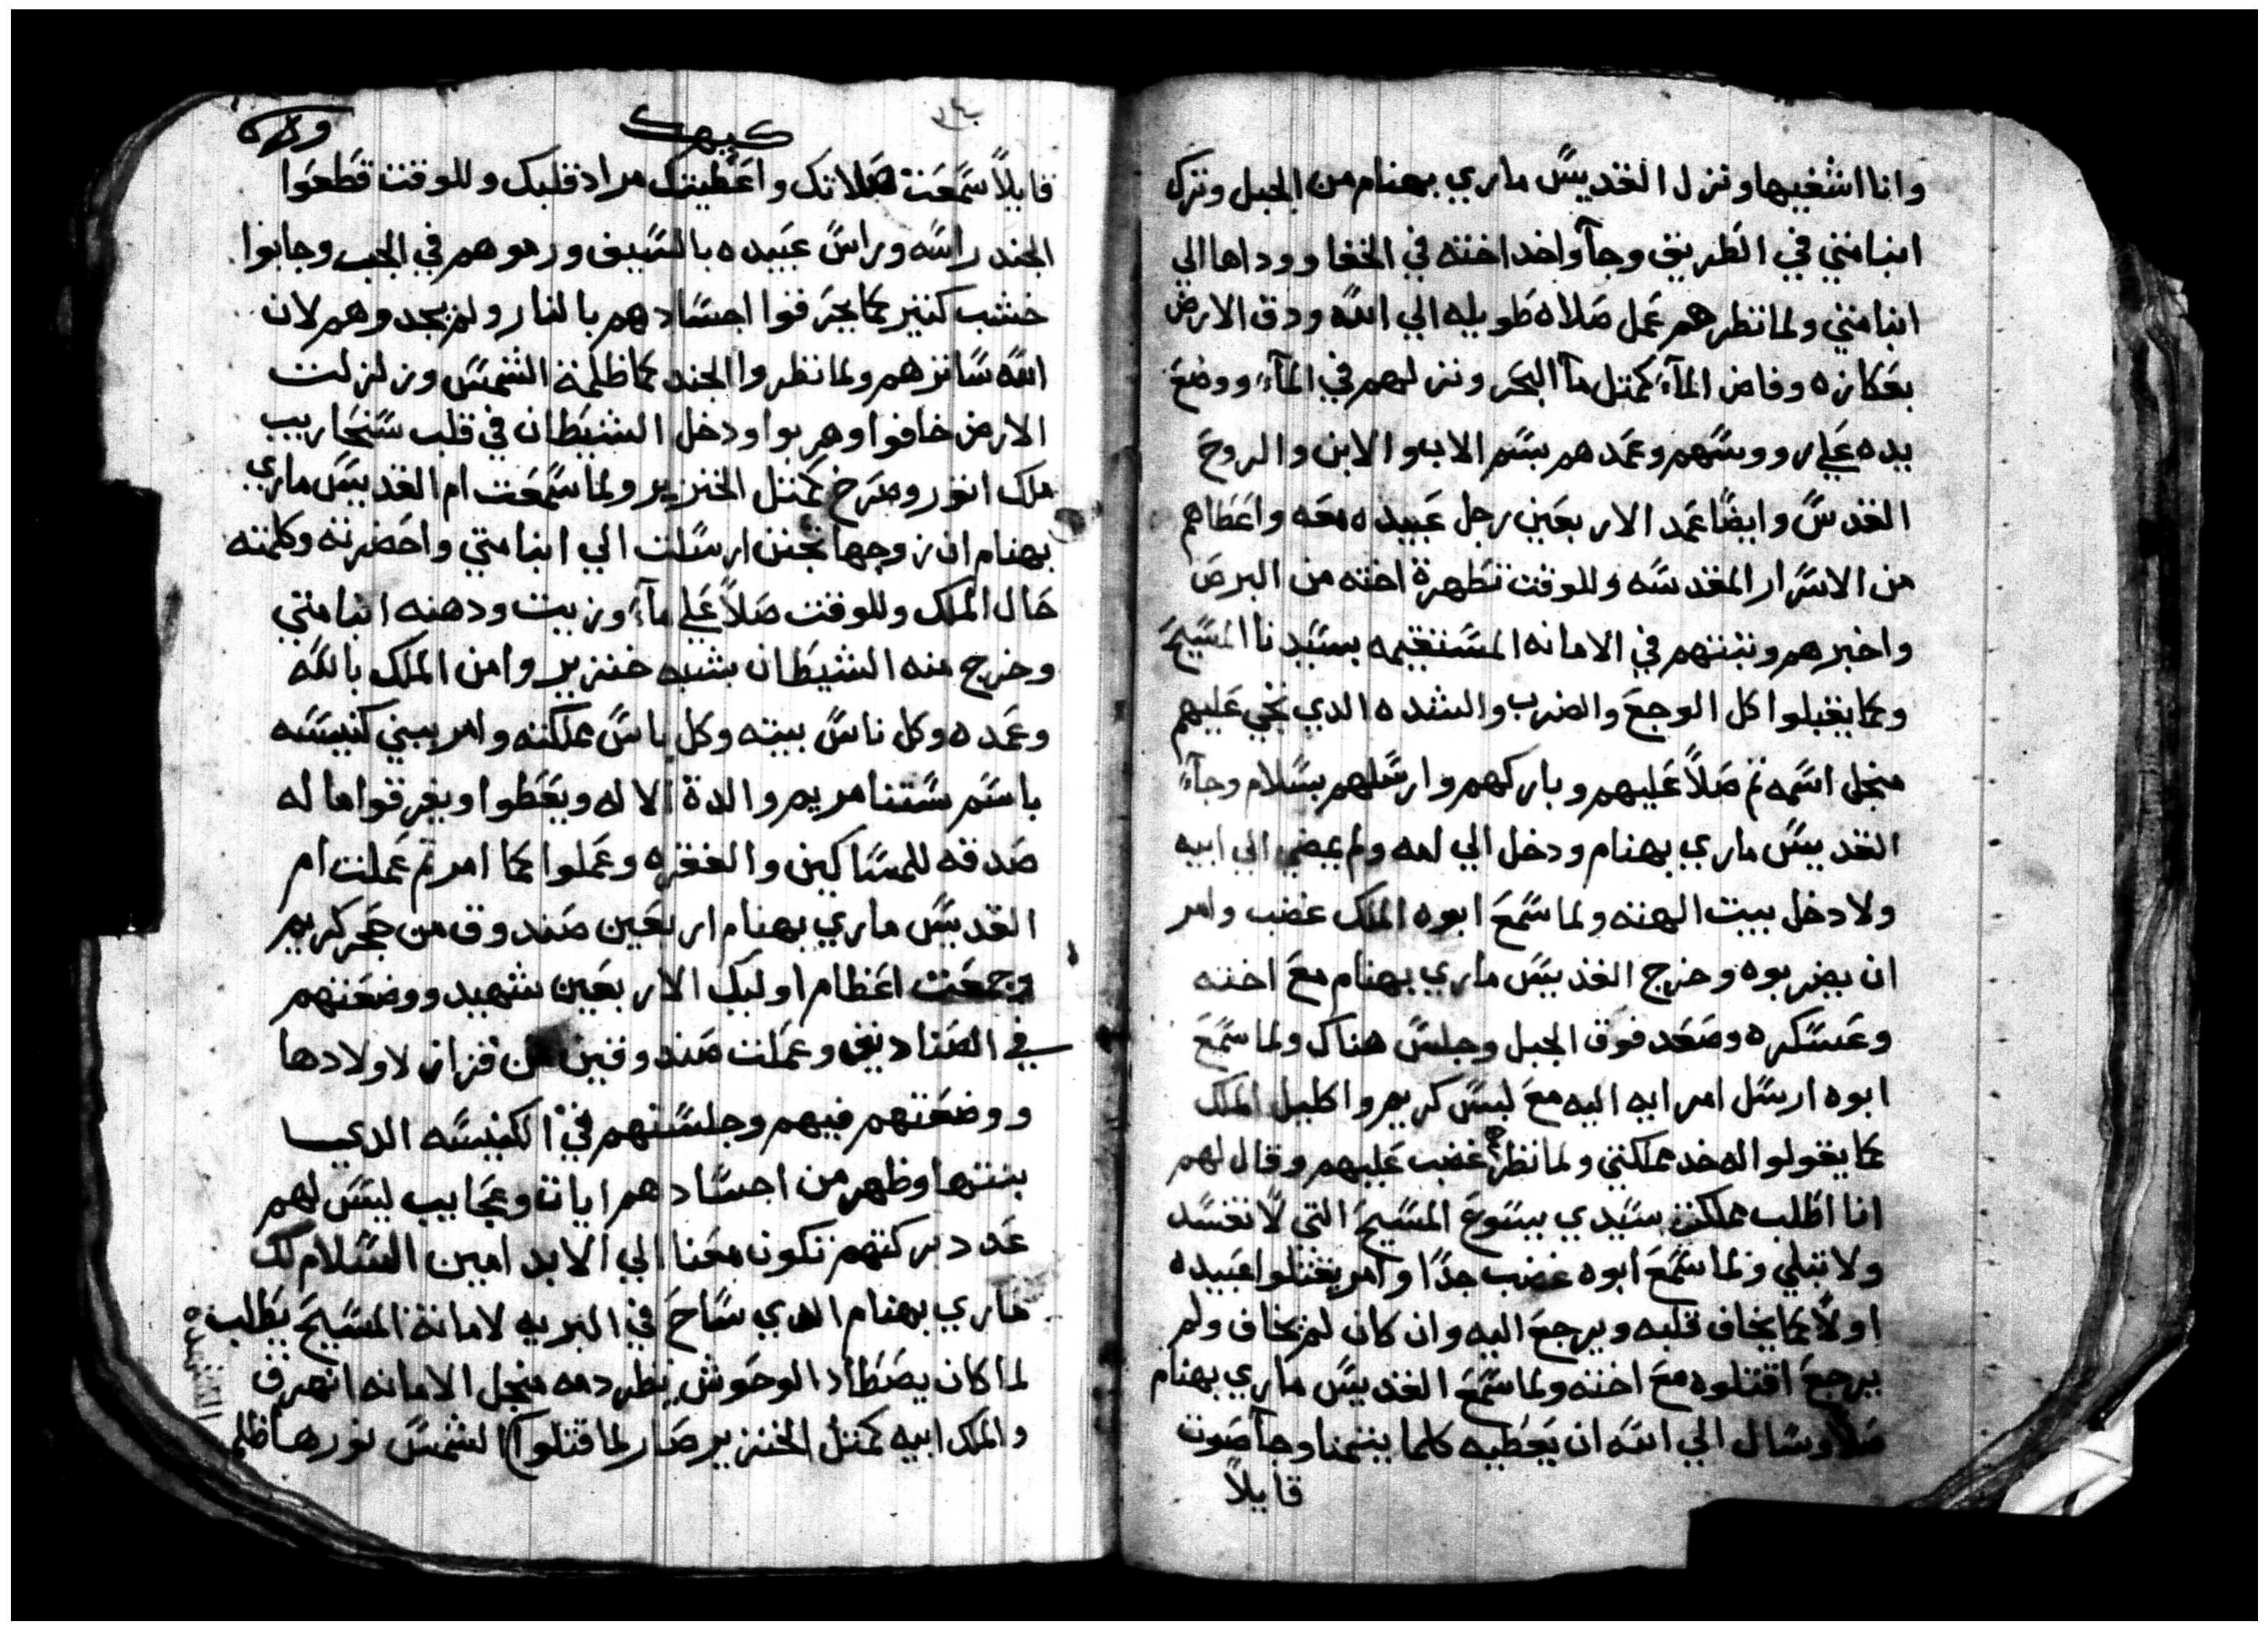 وانا اشفيها ونزل القديس ماري بهنام من الجبل وترك
انبا متي في الطريق وجآ واخد اخته في الخفا ووداها الي
انبا متي ولما نظرهم عمل صلاه طويله الي الله ودق الارض
بعكازه وفاض المآء كمتل مآ البحر ونزلهم في المآء ووضع
يده علي رووسهم وعمدهم بسم الاب والابن والروح
القدس وايضا عمد الاربعين رجل عبيده معه واعطاهم
من الاسرار المقدسه وللوقت تطهرة اخته من البرص
واخبرهم وتبتهم في الامانه المستقيمه بسيدنا المسيح
وكما يقبلوا كل الوجع والضرب والشده الدي تجي عليهم
منجل اسمه تم صلاً عليهم وباركهم وارسلهم بسلام وجآء
القديس ماري بهنام ودخل الي امه ولم يمضي الي ابيه
ولا دخل بيت الهته ولما سمع ابوه الملك غضب وامر
ان يضربوه وخرج القديس ماري بهنام مع اخته
وعسكره وصعد فوق الجبل وجلس هناك ولما سمع
ابوه ارسل امرايه اليه مع لبس كريم واكليل الملك
كما يقولوا له خد مملكتي ولما نظرهم غضب عليهم وقال لهم
انا اطلب مملكة سيدي يسوع المسيح التي لا تفسد
ولا تبلي ولما سمع ابوه غضب جدًا وامر يقتلوا عبيده
اولًا كما يخاف قلبه ويرجع اليه وان كان لم يخاف ولم
يرجع اقتلوه مع اخته ولما سمع القديس ماري بهنام
صلاً وسال الي الله ان يعطيه كلما يتمنا وجآ صوت
قايلاً
كيهك
قايلاً سمعت صلاتك واعطيتك مراد قلبك وللوقت قطعوا
الجند راسه وراس عبيده بالسيف ورموهم في الجب وجابوا
خشب كتير كما يحرقوا اجسادهم بالنار ولم يجدوهم لان
الله ساترهم ولما نظروا الجند كما ظلمة الشمس وزلزلت
الارض خافوا وهربوا ودخل الشيطان في قلب سنحاريب
ملك اتور وصرخ كمتل الخنزير ولما سمعت ام القديس ماري
بهنام ان زوجها تجنن ارسلت الي انبا متي واحضرته وكلمته
حال الملك وللوقت صلاً علي مآء وزيت ودهنه انبا متي
وخرج منه الشيطان بشبه خنزير وامن الملك بالله
وعمده وكل ناس بيته وكل ناس مملكته وامر يبني كنيسه
باسم ستنا مريم والدة الاله ويعطوا ويفرقوا ماله
صدقه للمساكين والفقره وعملوا كما امر تم عملت ام
القديس ماري بهنام اربعين صندوق من حجر كريم
وجمعت اعظام اوليك الاربعين شهيد ووضعتهم
في الصناديق وعملت صندوقين من قزاز لاولادها
ووضعتهم فيهم وجلستهم في الكنيسه الدي
بنتها وظهر من اجسادهم ايات وعجايب ليس لهم
عدد بركتهم تكون معنا الي الابد امين السلام لك
ماري بهنام الدي ساح في البريه لامانة المسيح يطلب
لما كان يصطاد الوحوش يطرد دمه منجل الامانه انهرق
والملك ابيه كمتل الخنزير صار لما قتلوا الشمس نورها ظلم